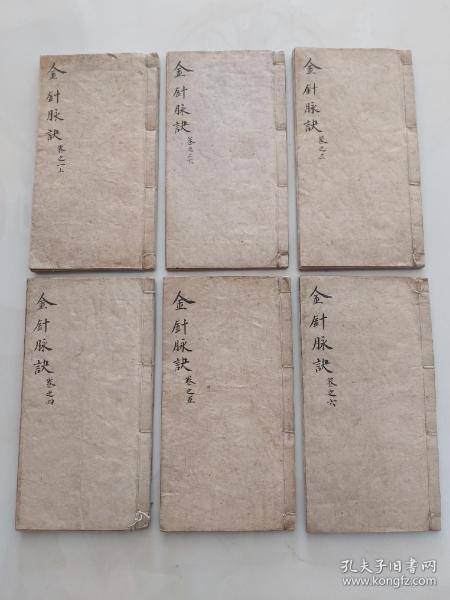 金針脉訣
卷之一上
金針脉訣
金針脉訣
卷之三
金針脉訣
卷之四
金針脉訣
卷之五
金針脉訣
卷之六
孔夫子旧书网
www.kongfz.com